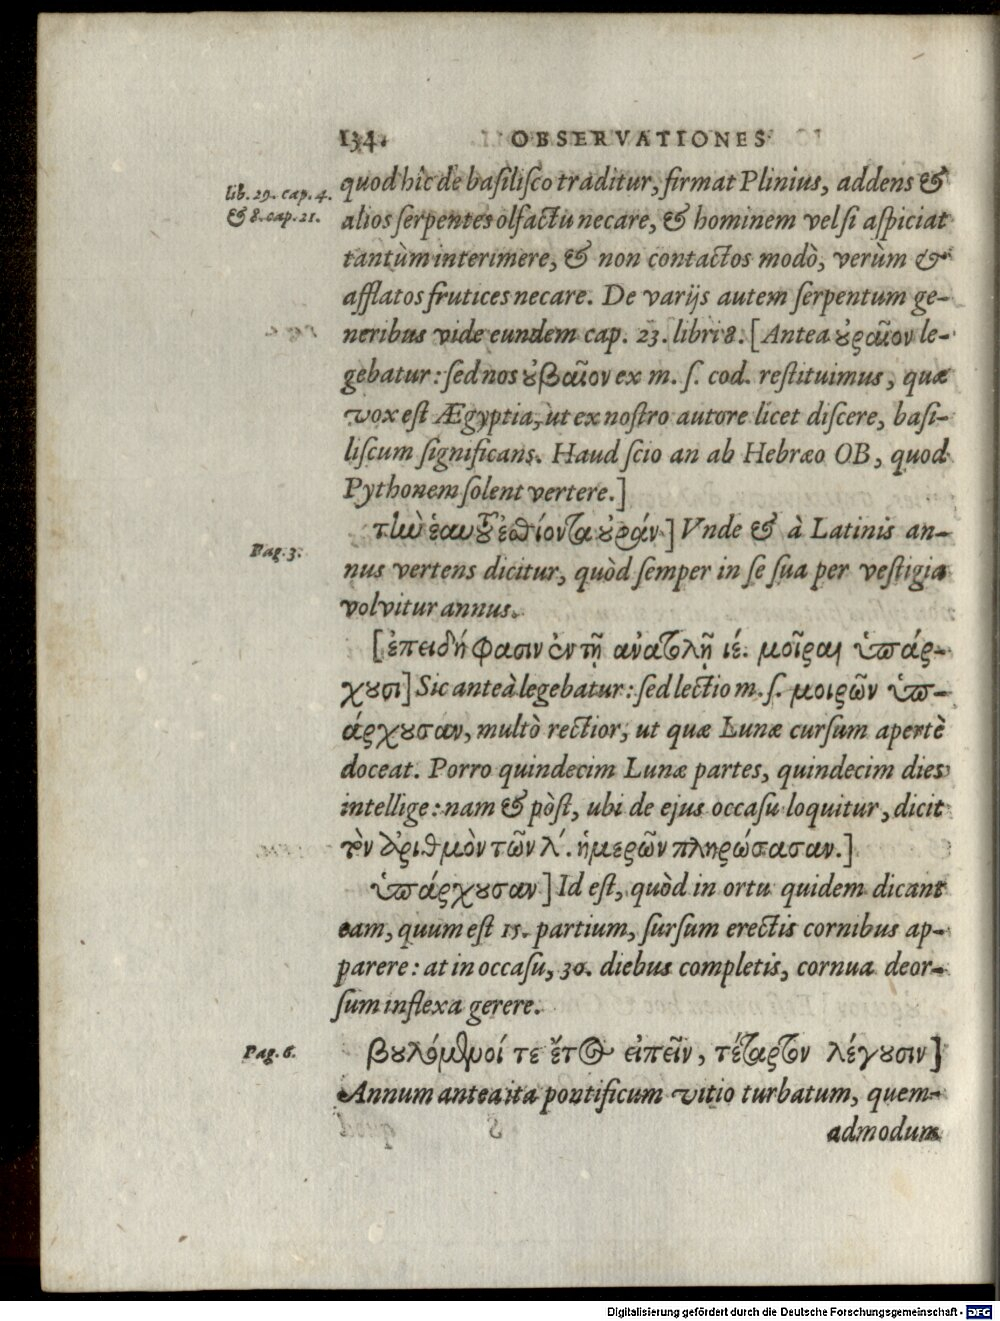 134. OBSERVATIONES
lib. 29. cap. 4.
& 8. cap. 21.
quod hîc de basilisco traditur, firmat Plinius, addens &
alios serpentes olfactu necare, & hominem vel si aspiciat
tantùm interimere, & non contactos modò, verùm &
afflatos frutices necare. De varijs autem serpentum ge-
neribus vide eundem cap. 23. libri 8. [Antea ȣ̓ραῖον le-
gebatur: sed nos ȣ̓βαῖον ex m. s. cod. restituimus, quæ
vox est Ægyptia, ut ex nostro autore licet discere, basi-
liscum significans. Haud scio an ab Hebræo OB, quod
Pythonem solent vertere.]
Pag. 3.
τὴν ἑαυτȣ͂ ἐσθίοντα ȣ̓ράν] Vnde & à Latinis an-
nus vertens dicitur, quòd semper in se sua per vestigia
volvitur annus.
[ἐπειδή φασιν ἐν τῇ ἀνατολῇ ιέ. μοῖραι ὑπάρ-
χȣσι] Sic anteà legebatur: sed lectio m. s. μοιρῶν ὑπ-
άρχȣσαν, multò rectior, ut quæ Lunæ cursum apertè
doceat. Porro quindecim Lunæ partes, quindecim dies
intellige: nam & pòst, ubi de ejus occasu loquitur, dicit
τὸν ἀριθμὸν τῶν λ´. ἡμερῶν πληρώσασαν.]
ὑπάρχȣσαν] Id est, quòd in ortu quidem dicant
eam, quum est 15. partium, sursum erectis cornibus ap-
parere: at in occasu, 30. diebus completis, cornua deor-
sum inflexa gerere.
Pag. 6.
βȣλόμενοί τε ἔτος εἰπεῖν, τέταρτον λέγȣσιν]
Annum antea ita pontificum vitio turbatum, quem-
admodum
Digitalisierung gefördert durch die Deutsche Forschungsgemeinschaft - DFG